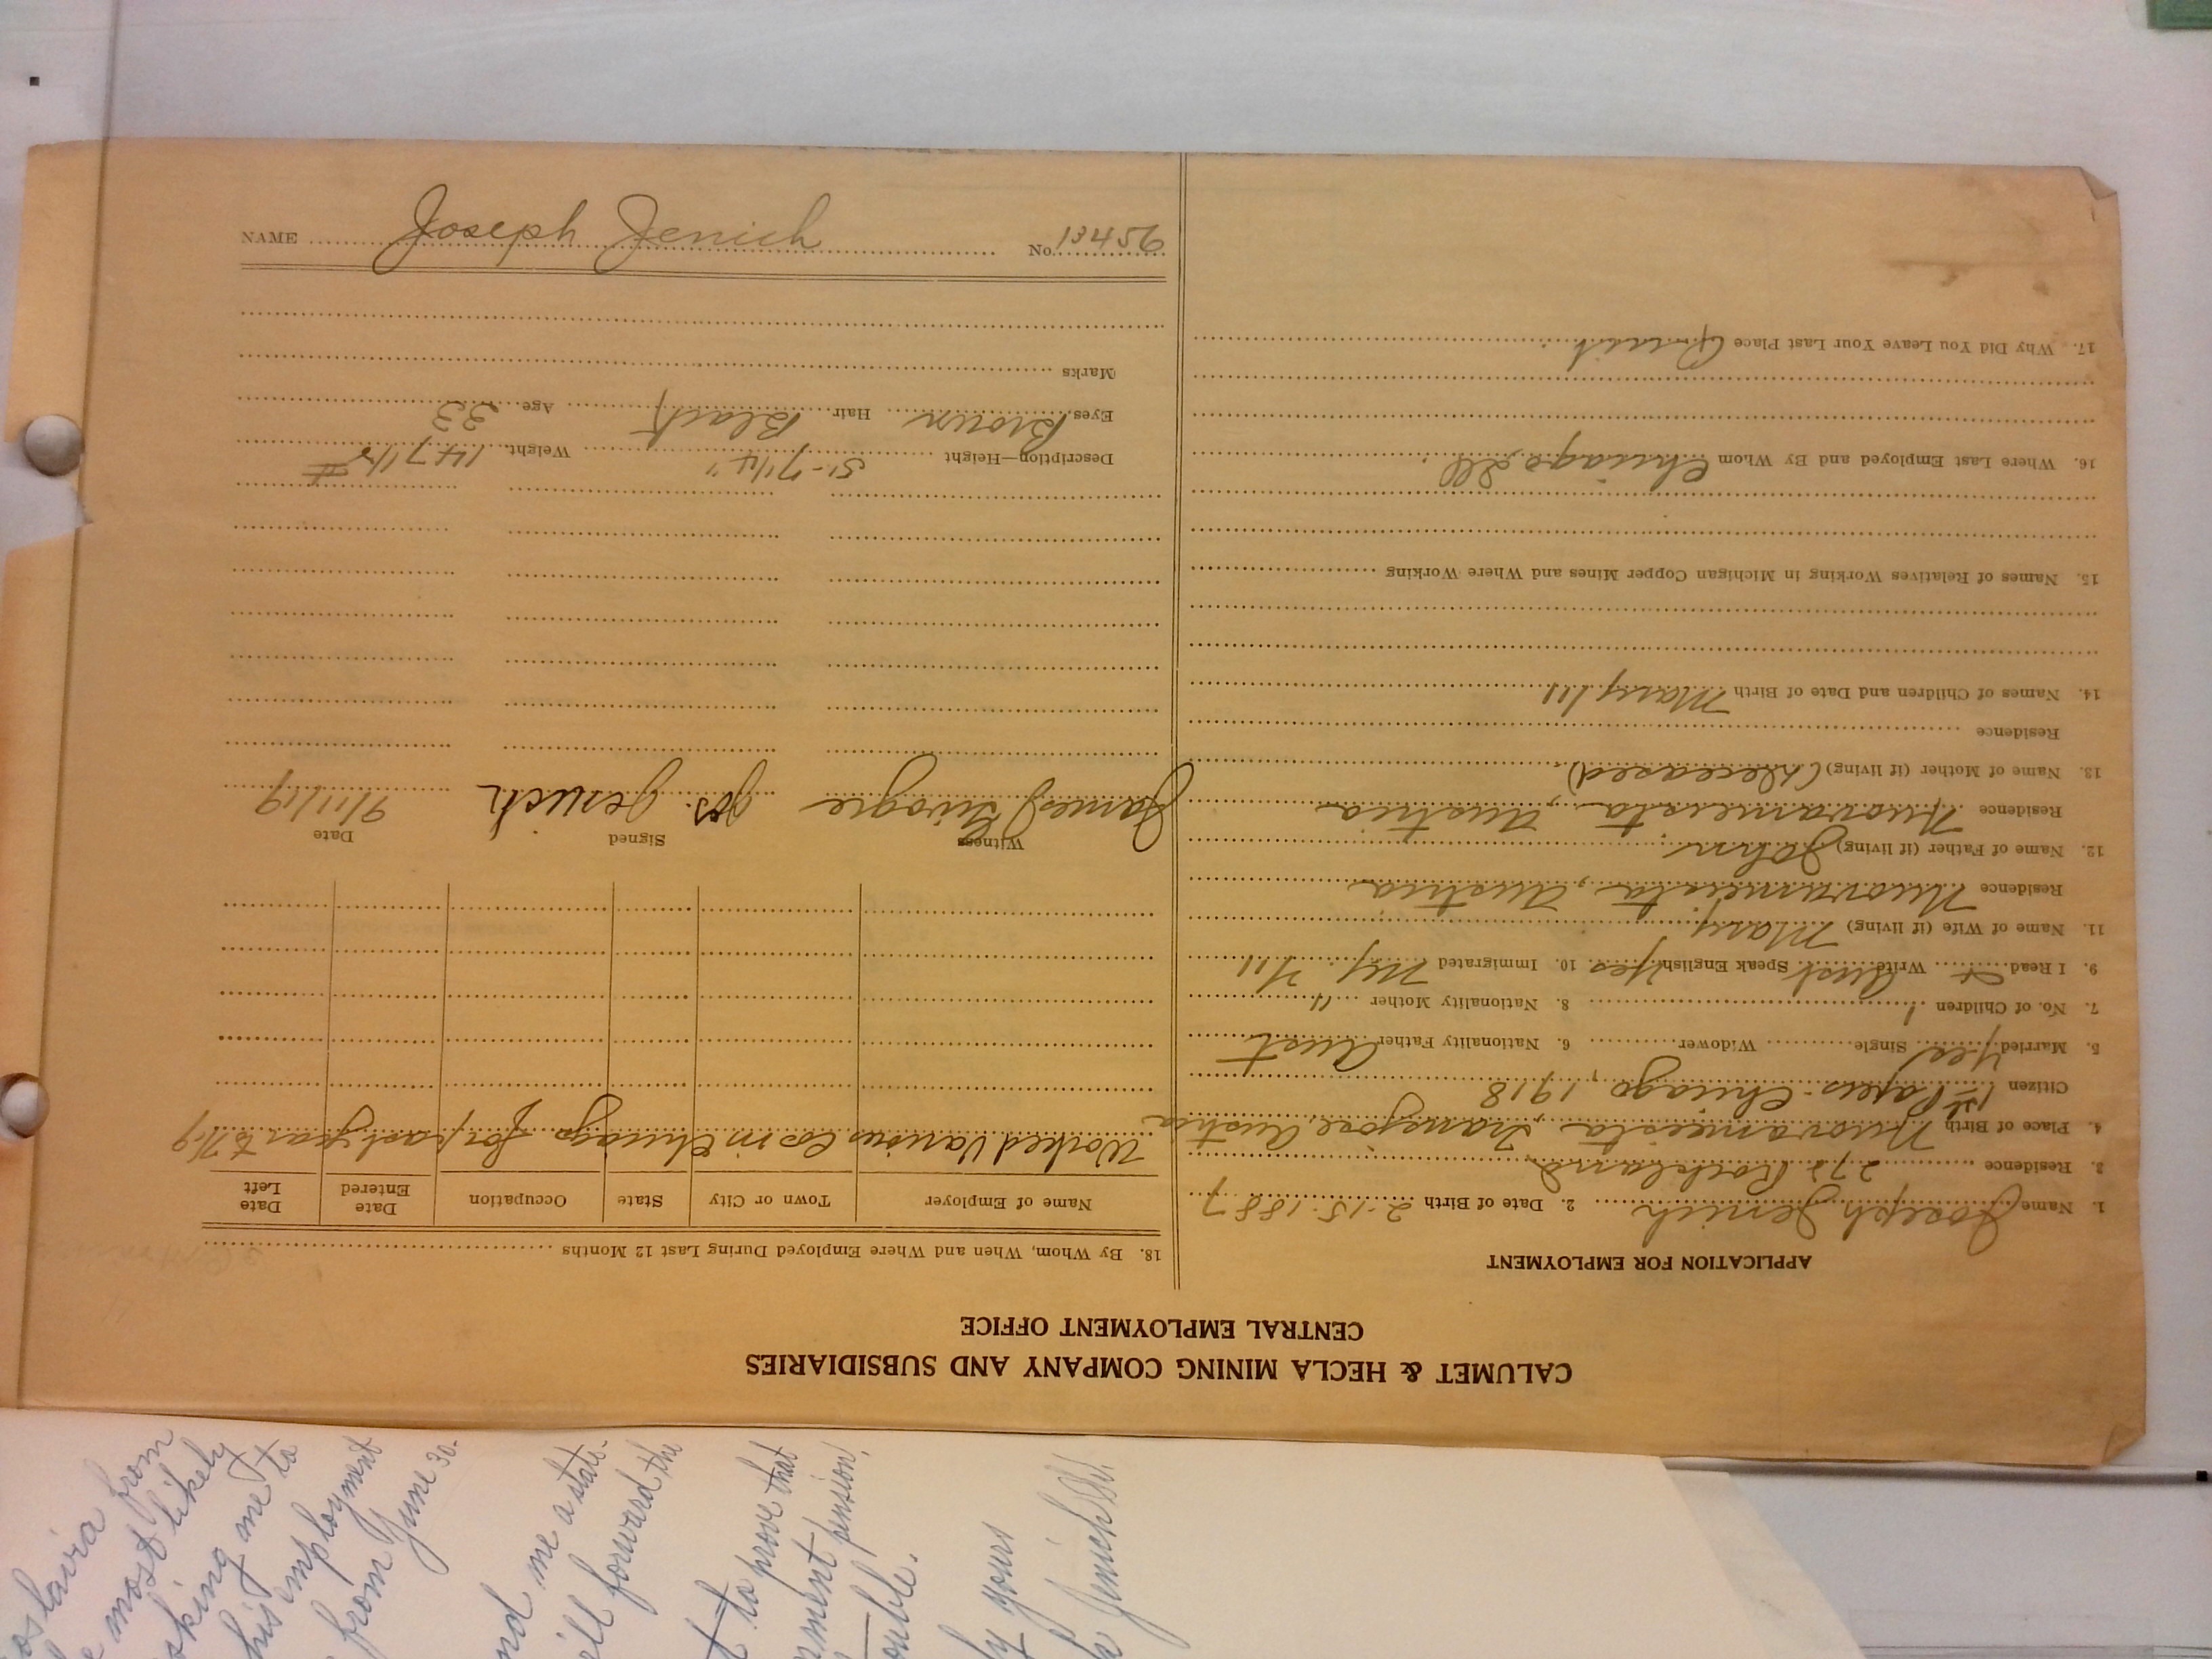 CALUMET & HECLA MINING COMPANY AND SUBSIDIARIES
CENTRAL EMPLOYMENT OFFICE
APPLICATION FOR EMPLOYMENT
1. Name Joseph Jenich 2. Date of Birth 2-15-1887
3. Residence 272 Rockland
4. Place of Birth Austria
Citizen 1st Papers Chicago, 1918
5. Married Yes Single Widower 6. Nationality Father Aust
7. No. of Children 1 8. Nationality Mother "
9. I Read Write Aust Speak English Yes 10. Immigrated Ny. 7/11
11. Name of Wife (if living) Mary
Residence Austria
12. Name of Father (if living) John
Residence Austria
13. Name of Mother (if living) (Deceased)
Residence
14. Names of Children and Date of Birth Mary 1/11
15. Names of Relatives Working in Michigan Copper Mines and Where Working
16. Where Last Employed and By Whom Chicago Ill
17. Why Did You Leave Your Last Place Quit
18. By Whom, When and Where Employed During Last 12 Months
Name of Employer Town or City State Occupation Date Entered Date Left
Worked Various Cos in Chicago for past year to 7/19
Witness Signed Date
James Jos. Jenich 9/11/19
Description—Height 5'-7 1/4" Weight 147 1/2 #
Eyes Brown Hair Black Age 33
Marks
NAME Joseph Jenich No. 13456
oslavia from
most likely
me to
his employment
from June 30-
nd me a state-
ill forward the
to prove that
rnment pension,
ouble.
ly yours
Jenich